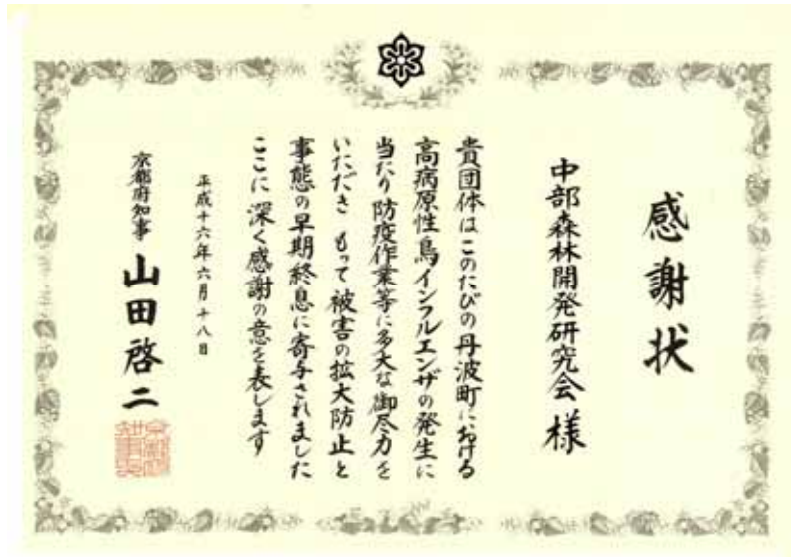 感謝状
中部森林開発研究会様
貴団体はこのたびの丹波町における
高病原性鳥インフルエンザの発生に
当たり防疫作業等に多大な御尽力を
いただき もって被害の拡大防止と
事態の早期終息に寄与されました
ここに深く感謝の意を表します
平成十六年六月十八日
京都府知事 山田啓二